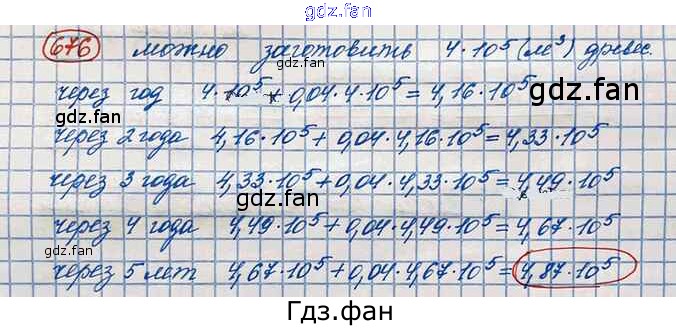 gdz.fan
676 можно заготовить 4·10⁵ (м³) древес.
gdz.fan
через год 4·10⁵ + 0,04·4·10⁵ = 4,16·10⁵
gdz.fan
через 2 года 4,16·10⁵ + 0,04·4,16·10⁵ = 4,33·10⁵
gdz.fan
через 3 года 4,33·10⁵ + 0,04·4,33·10⁵ = 4,49·10⁵
gdz.fan gdz.fan
через 4 года 4,49·10⁵ + 0,04·4,49·10⁵ = 4,67·10⁵
gdz.fan
через 5 лет 4,67·10⁵ + 0,04·4,67·10⁵ = 4,87·10⁵
gdz.fan
Гдз.фан